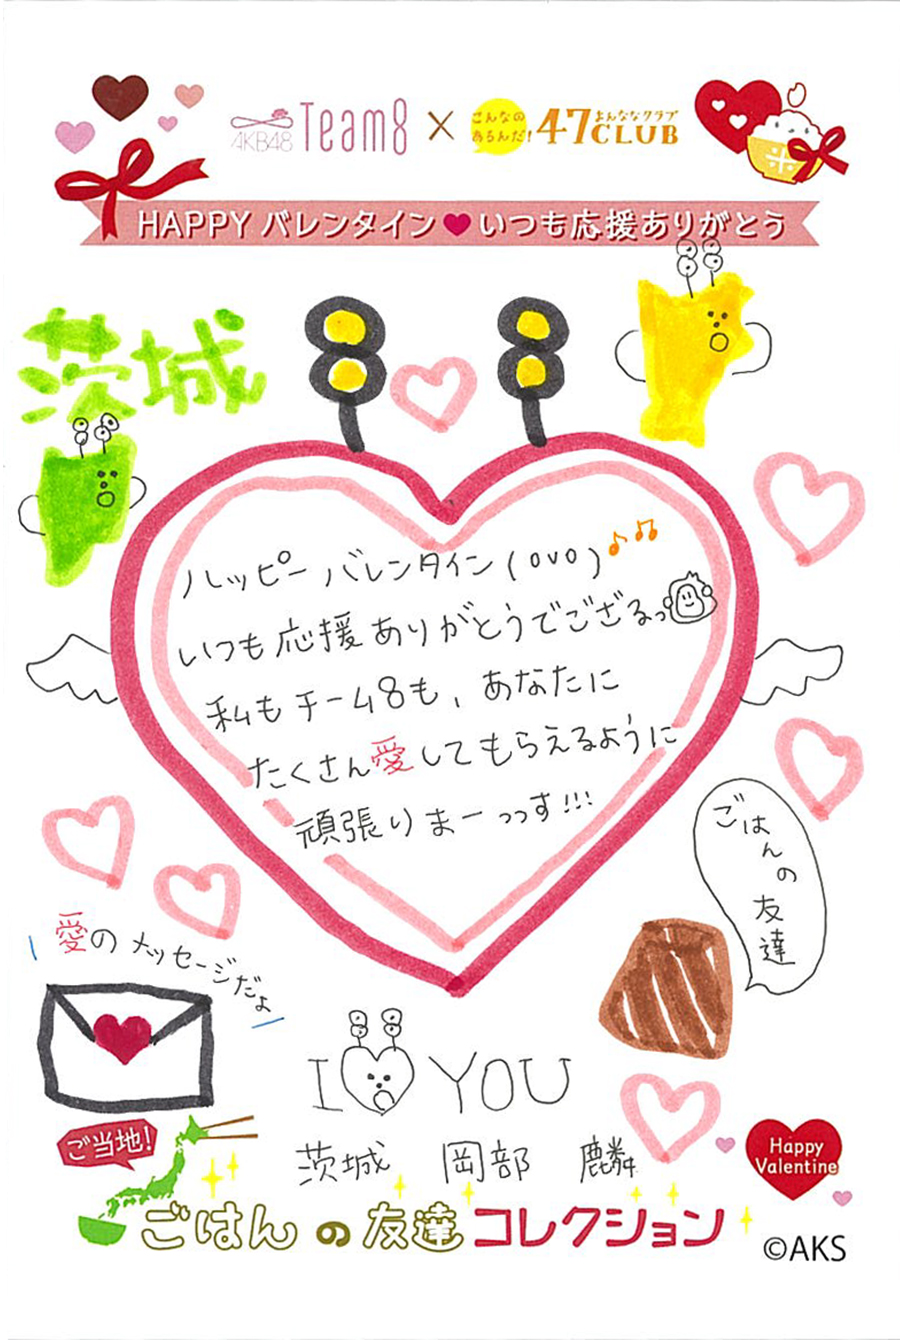 AKB48 Team8 × こんなのあるんだ! 47CLUB よんななクラブ
HAPPY バレンタイン♥いつも応援ありがとう
茨城
ハッピーバレンタイン(OVO)♪♫
いつも応援ありがとうでござるっ
私もチーム8も、あなたに
たくさん愛してもらえるように
頑張りまーっっす!!!
ごはんの友達
愛のメッセージだよ
I YOU
茨城 岡部 麟
ご当地!
Happy
Valentine
ごはんの友達コレクション
©AKS
米